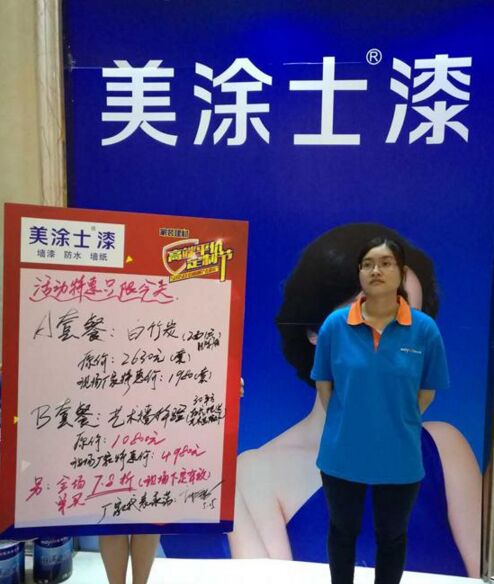 美涂士®漆
美涂士®漆
墙漆 防水 墙纸
家装建材
高端平价
定制节
活动特惠只限今天
A套餐：白竹炭
原价：2630元(套)
现场厂家特惠价：1980(套)
B套餐：艺术墙
原价：10800元
现场厂家特惠价：4980元
另：全场7.2折(现场下定有效)
单买
厂家代表承诺：
5.5